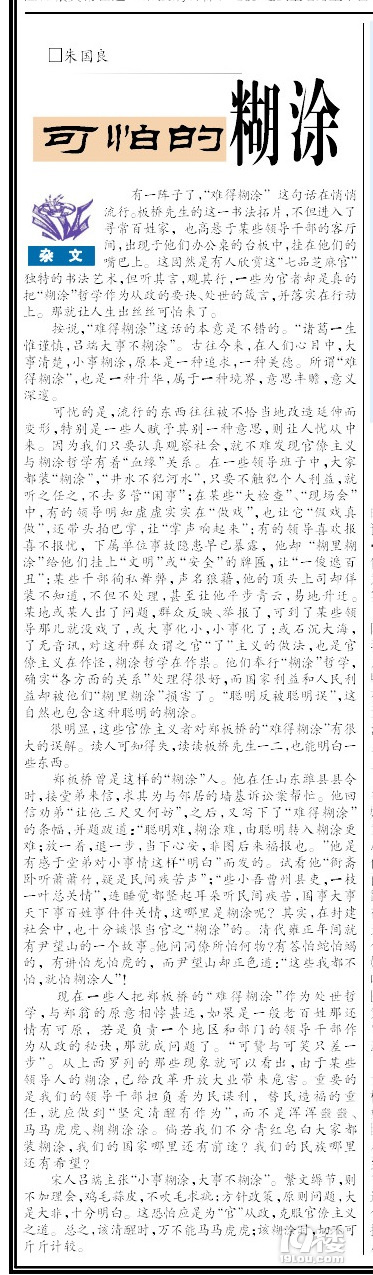 □朱国良
可怕的糊涂
杂 文
有一阵子了，“难得糊涂” 这句话在悄悄
流行。板桥先生的这一书法拓片，不但进入了
寻常百姓家，也高悬于某些领导干部的客厅
间，出现于他们办公桌的台板中，挂在他们的
嘴巴上。这固然是有人欣赏这“七品芝麻官”
独特的书法艺术，但听其言，观其行，一些为官者却是真的
把“糊涂”哲学作为从政的要诀、处世的箴言，并落实在行动
上。那就让人生出丝丝可怕来了。
按说，“难得糊涂”这话的本意是不错的。“诸葛一生
惟谨慎，吕端大事不糊涂”。古往今来，在人们心目中，大
事清楚，小事糊涂，原本是一种追求，一种美德。所谓“难
得糊涂”，也是一种升华，属于一种境界，意思丰赡，意义
深邃。
可忧的是，流行的东西往往被不恰当地改造延伸而
变形，特别是一些人赋予其别一种意思，则让人忧从中
来。因为我们只要认真观察社会，就不难发现官僚主义
与糊涂哲学有着“血缘”关系。在一些领导班子中，大家
都装“糊涂”，“井水不犯河水”，只要不触犯个人利益，就
听之任之，不去多管“闲事”；在某些“大检查”、“现场会”
中，有的领导明知虚虚实实在“做戏”，也让它“假戏真
做”，还带头拍巴掌，让“掌声响起来”；有的领导喜欢报
喜不报忧，下属单位事故隐患早已暴露，他却 “糊里糊
涂”给他们挂上“文明”或“安全”的牌匾，让“一俊遮百
丑”；某些干部徇私舞弊，声名狼藉，他的顶头上司却佯
装不知道，不但不处理，甚至让他平步青云，易地升迁。
某地或某人出了问题，群众反映、举报了，可到了某些领
导那儿就没戏了，或大事化小，小事化了；或石沉大海，
了无音讯，对这种群众谓之官“了”主义的做法，也是官
僚主义在作怪，糊涂哲学在作祟。他们奉行“糊涂”哲学，
确实“各方面的关系”处理得很好，而国家利益和人民利
益却被他们“糊里糊涂”损害了。“聪明反被聪明误”，这
自然也包含这种聪明的糊涂。
很明显，这些官僚主义者对郑板桥的“难得糊涂”有很
大的误解。读人可知得失，读读板桥先生一二，也能明白一
些东西。
郑板桥曾是这样的“糊涂”人。他在任山东潍县县令
时，接堂弟来信，求其为与邻居的墙基诉讼案帮忙。他回
信劝弟“让他三尺又何妨”，之后，又写下了“难得糊涂”
的条幅，并题跋道：“聪明难，糊涂难，由聪明转入糊涂更
难；放一着，退一步，当下心安，非图后来福报也。”他是
有感于堂弟对小事情这样“明白”而发的。试看他“衙斋
卧听萧萧竹，疑是民间疾苦声”；“些小吾曹州县吏，一枝
一叶总关情”，连睡觉都竖起耳朵听民间疾苦，国事大事
天下事百姓事件件关情，这哪里是糊涂呢？其实，在封建
社会中，也十分诚恨当官之“糊涂”的。清代雍正年间就
有尹望山的一个故事。他问同僚所怕何物？有答怕蛇怕蝎
的，有讲怕龙怕虎的，而尹望山却正色道：“这些我都不
怕，就怕糊涂人”！
现在一些人把郑板桥的“难得糊涂”作为处世哲
学，与郑翁的原意相悖甚远，如果是一般老百姓那还
情有可原，若是负责一个地区和部门的领导干部作
为从政的秘诀，那就成问题了。“可赞与可笑只差一
步”。从上面罗列的那些现象就可以看出，由于某些
领导人的糊涂，已给改革开放大业带来危害。重要的
是我们的领导干部担负着为民谋利，替民造福的重
任，就应做到“坚定清醒有作为”，而不是浑浑噩噩、
马马虎虎、糊糊涂涂。倘若我们不分青红皂白大家都
装糊涂，我们的国家哪里还有前途？我们的民族哪里
还有希望？
宋人吕端主张“小事糊涂，大事不糊涂”。繁文缛节，则
不加理会，鸡毛蒜皮，不吹毛求疵；方针政策，原则问题，大
是大非，十分明白。这恐怕应是为“官”从政，克服官僚主义
之道。总之，该清醒时，万不能马马虎虎；该糊涂时，切不可
斤斤计较。
19楼